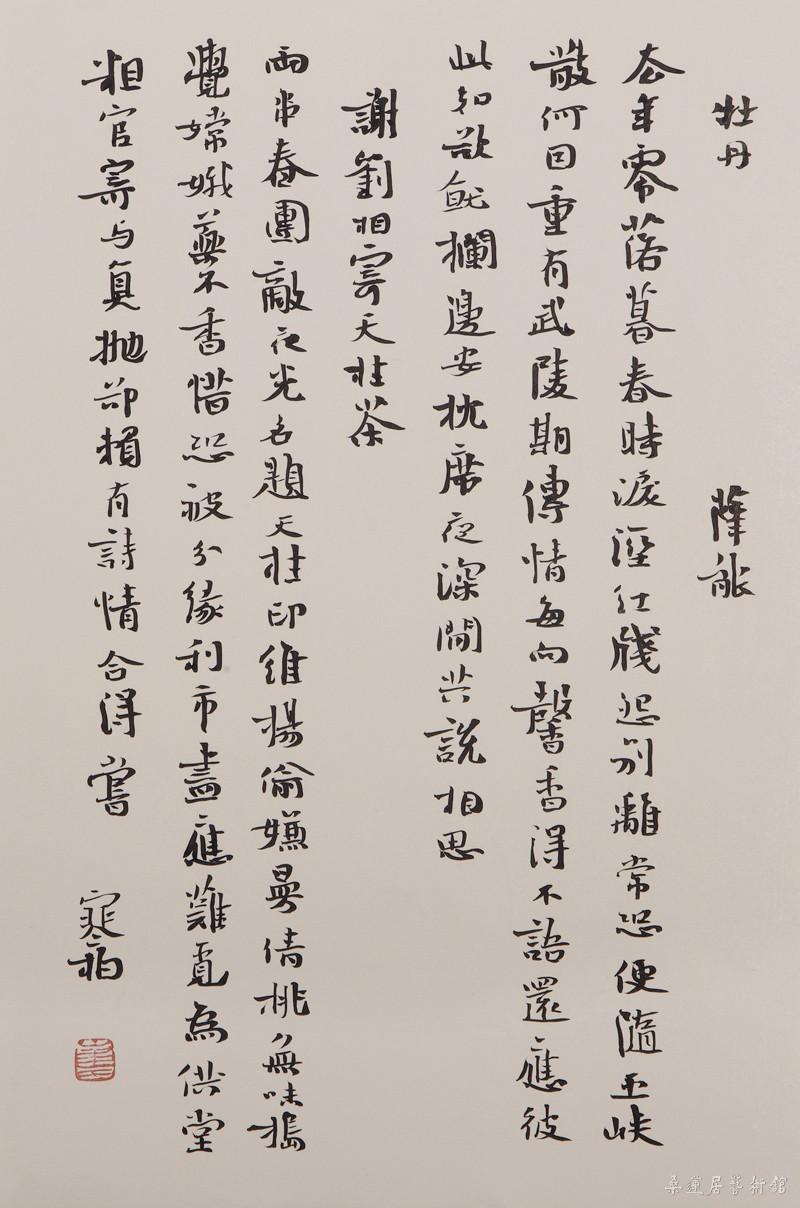 牡丹 薛能
去年零落暮春時淚溼紅牋怨別離常恐便隨巫峽
散何因重有武陵期傳情每向馨香得不語還應彼
此知欲就欄邊安枕席夜深閒共說相思
謝劉相寄天柱茶
兩串春團敵夜光名題天柱印維揚偷嫌曼倩桃無味搗
覺嫦娥藥不香惜恐被分緣利市盡應難覓為供堂
粗官寄与真拋卻賴有詩情合得嘗
寒柏
桑蓮居藝術館